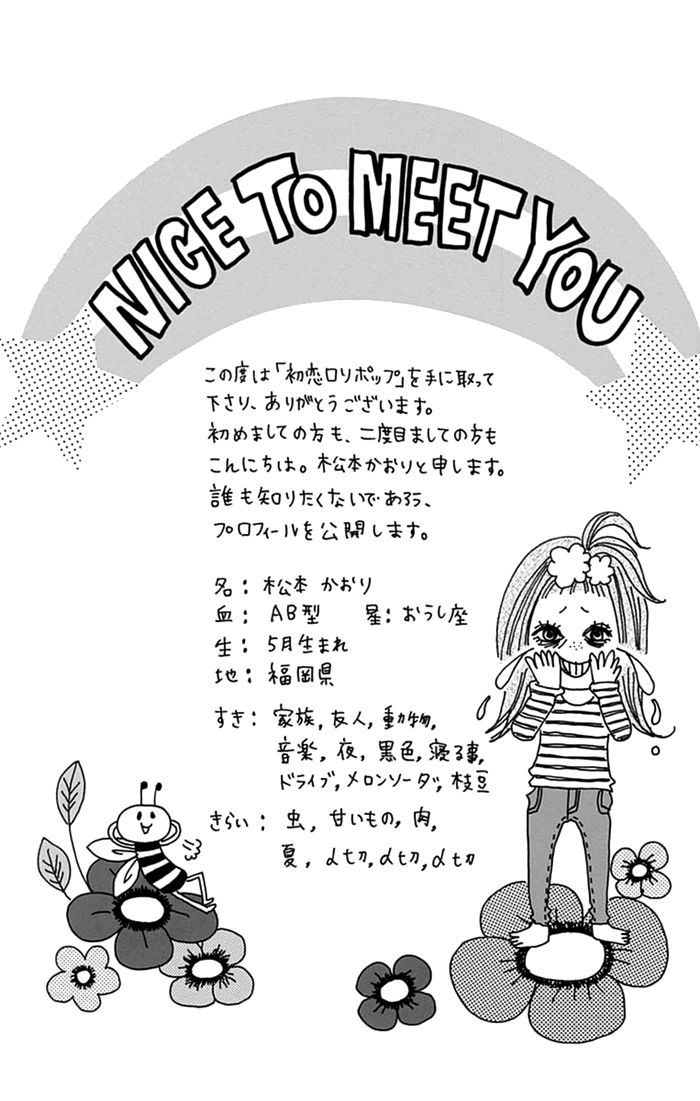 NICE TO MEET YOU
この度は「初恋ロリポップ」を手に取って
下さり、ありがとうございます。
初めましての方も、二度目ましての方も
こんにちは。松本かおりと申します。
誰も知りたくないであろう、
プロフィールを公開します。
名：松本 かおり
血：AB型 星：おうし座
生：5月生まれ
地：福岡県
すき：家族，友人，動物，
音楽，夜，黒色，寝る事，
ドライブ，メロンソーダ，枝豆
きらい：虫，甘いもの，肉，
夏，〆切，〆切，〆切